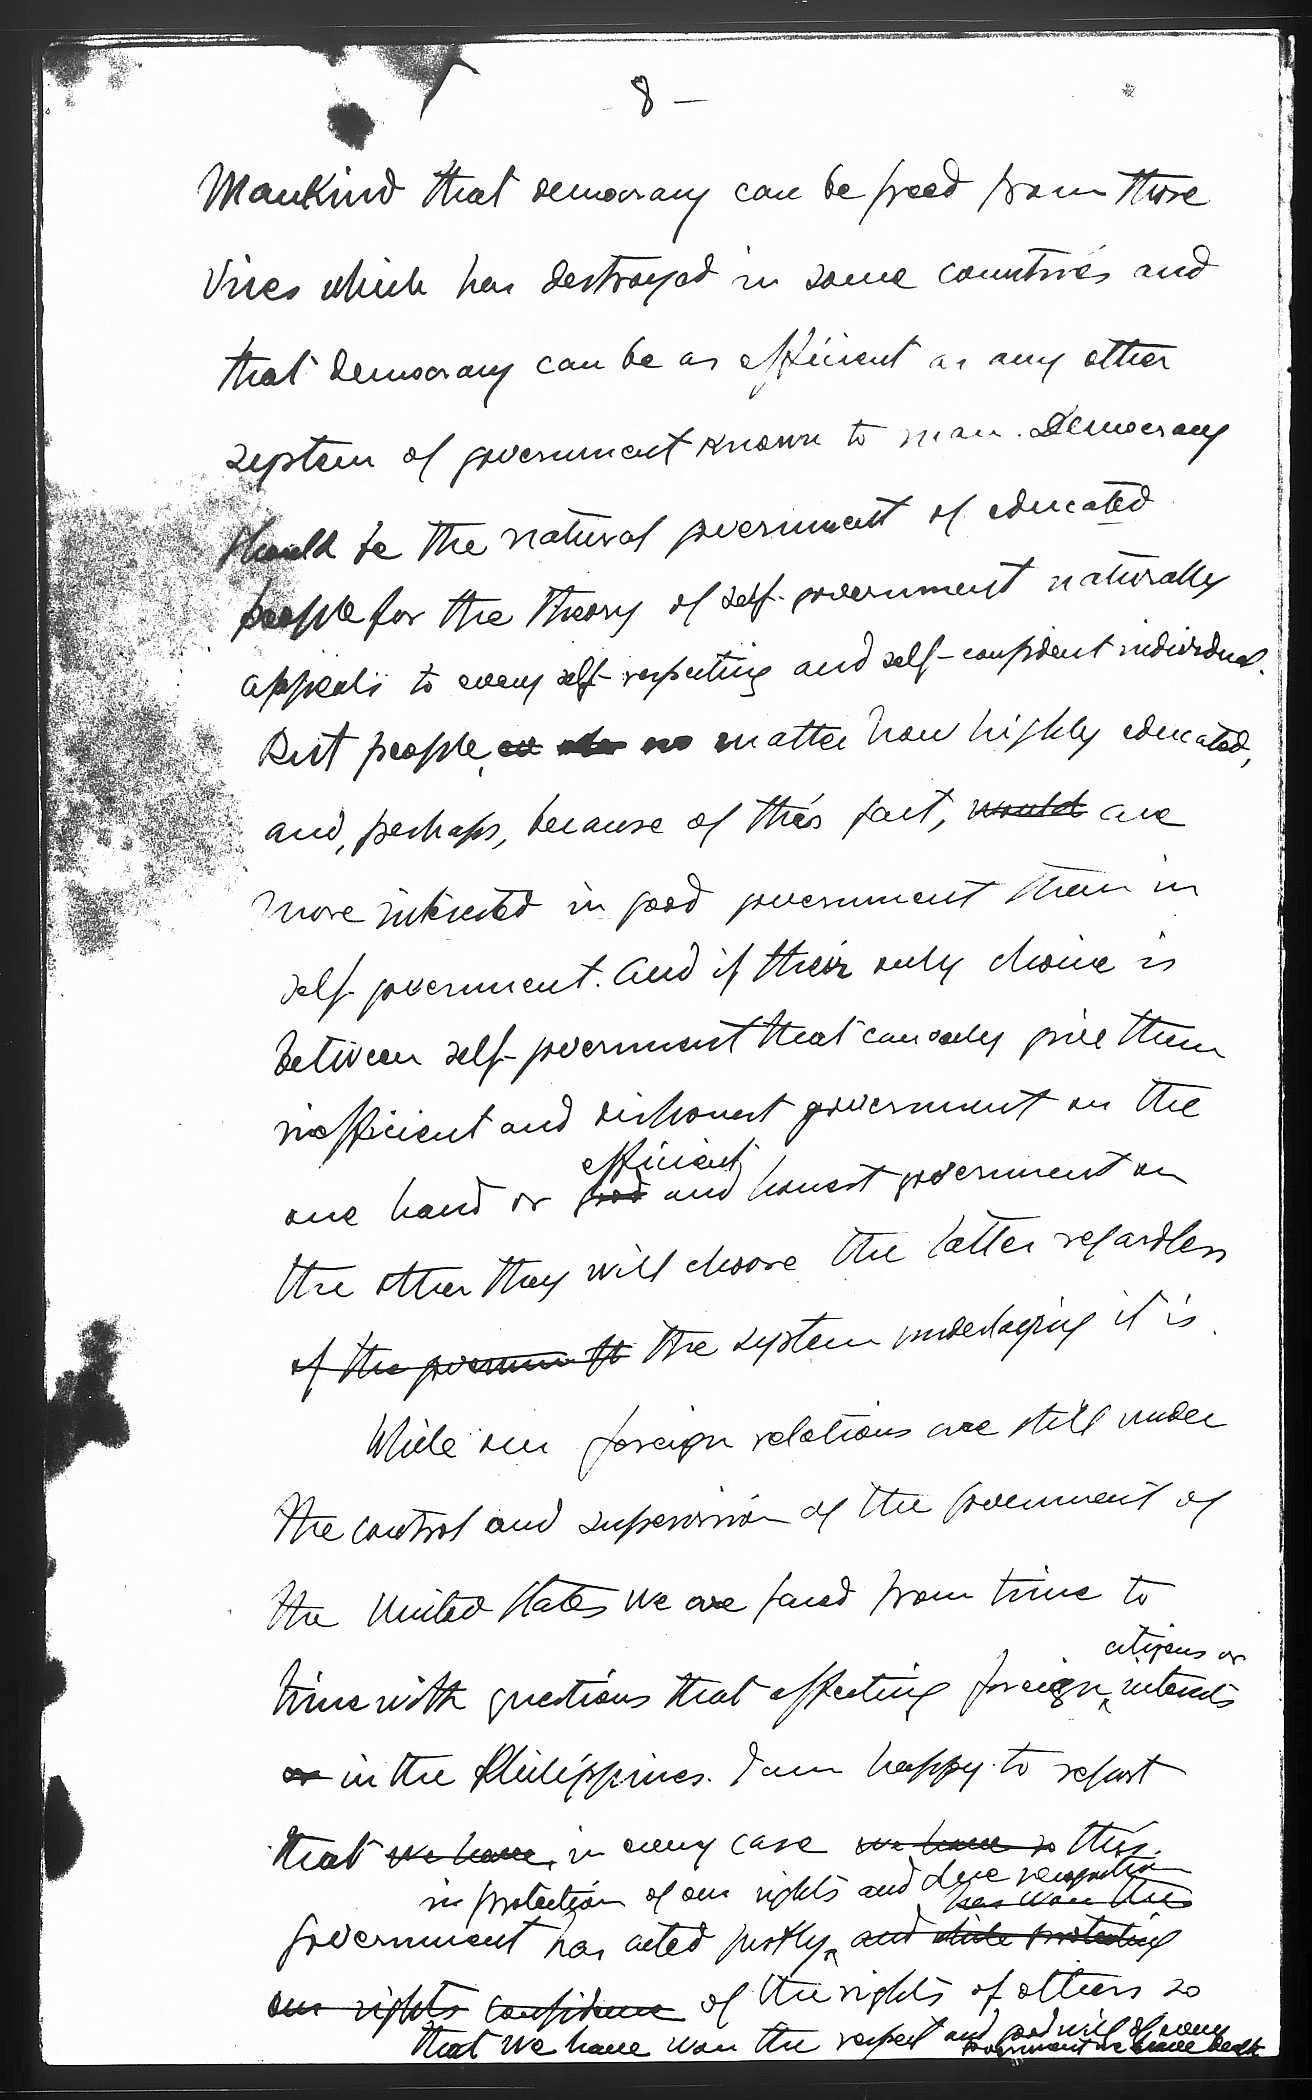 8 —
Mankind that democracy can be freed from those
vices which has destroyed in some countries and
that democracy can be as efficient as any other
system of government known to man. Democracy
should be the natural government of educated
people for the theory of self-government naturally
appeals to every self-respecting and self-confident individual.
But people, no matter how highly educated,
and, perhaps, because of this fact, would are
more interested in good government than in
self-government. And if their only choice is
between self-government that can only give them
inefficient and dishonest government on the
efficient
one hand or good and honest government on
the other they will choose the latter regardless
of the the system underlaying it is.
While our foreign relations are still under
the control and supervision of the government of
the United States we are faced from time to
citizens or
time with questions that affecting foreign interests
or in the Philippines. I am happy to report
that we have, in every case we have so this
in protection of our rights and due recognition
has won the
government has acted justly, and while protecting
our rights confidence of the rights of others so
that we have won the respect and good will of every
government we have dealt